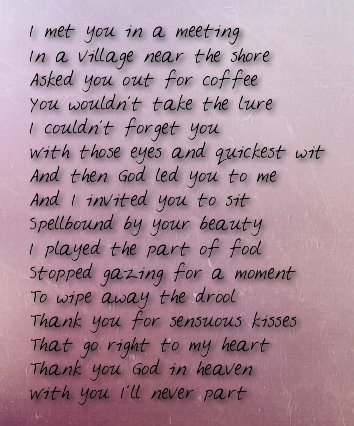 I met you in a meeting
In a village near the shore
Asked you out for coffee
You wouldn't take the lure
I couldn't forget you
With those eyes and quickest wit
And then God led you to me
And I invited you to sit
Spellbound by your beauty
I played the part of fool
Stopped gazing for a moment
To wipe away the drool
Thank you for sensuous kisses
That go right to my heart
Thank you God in heaven
With you I'll never part